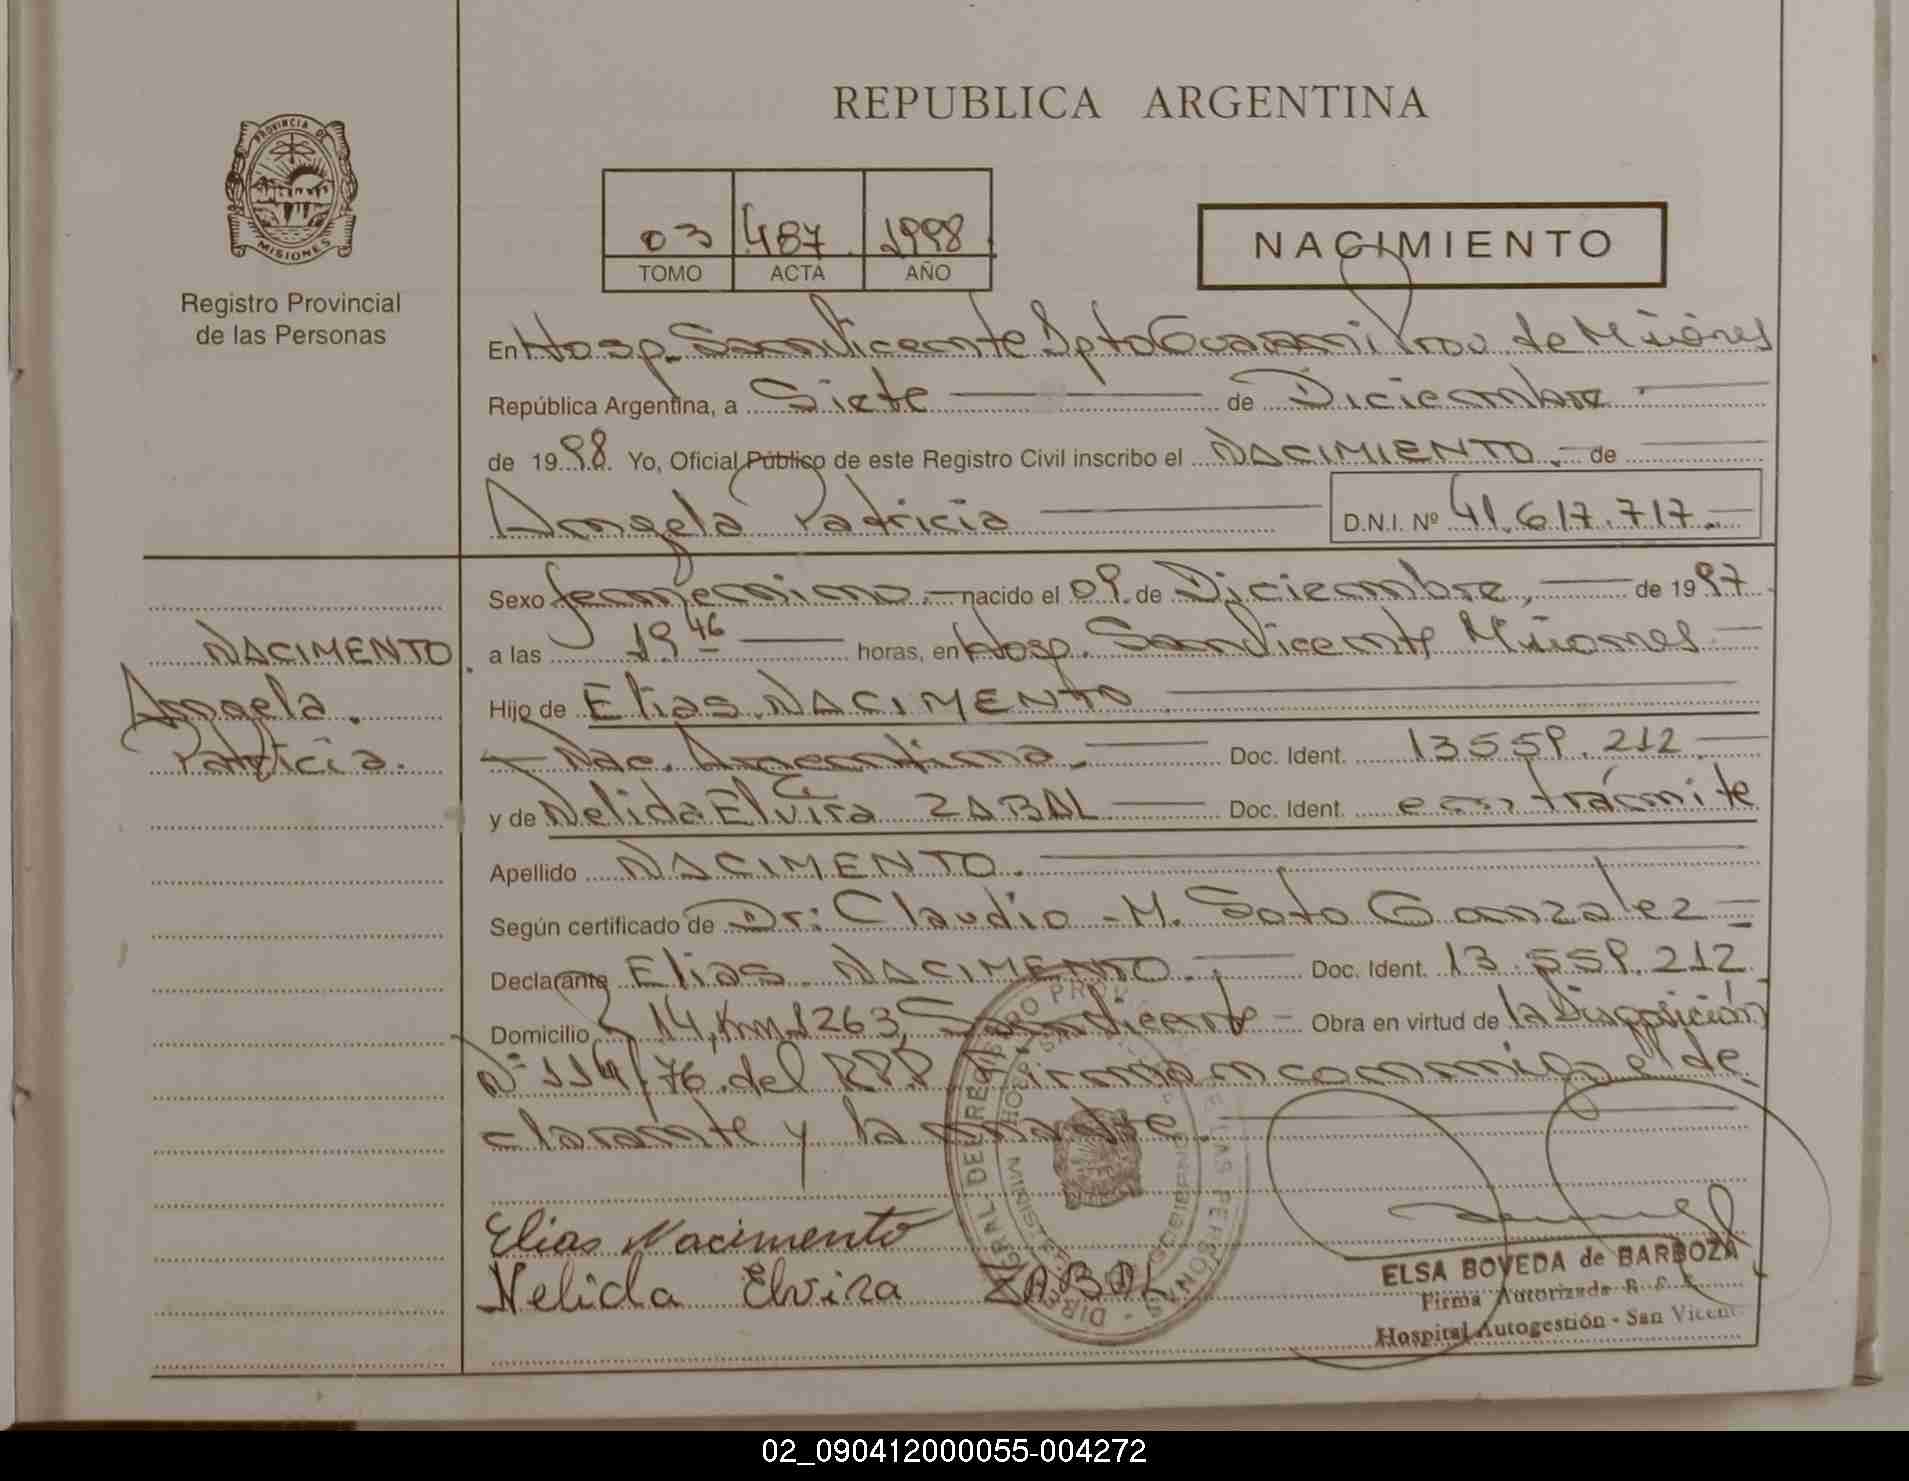 REPUBLICA ARGENTINA
PROVINCIA DE
MISIONES
Registro Provincial
de las Personas
03 487 1998
TOMO ACTA AÑO
NACIMIENTO
En Hosp. San Vicente Dpto Guarani Prov. de Misiones
República Argentina, a Siete de Diciembre
de 1998. Yo, Oficial Público de este Registro Civil inscribo el NACIMIENTO. de
Angela Patricia D.N.I. Nº 41.617.717.
Sexo femenino. nacido el 09 de Diciembre, de 1997
NACIMENTO
Angela.
Patricia.
a las 19 46 horas, en Hosp. San Vicente Misiones
Hijo de Elias NACIMENTO
Nac. Argentina. Doc. Ident. 13559.212
y de Nelida Elvira ZABAL Doc. Ident. en trámite
Apellido NACIMENTO.
Según certificado de Dr: Claudio M. Soto Gonzalez
Declarante Elias NACIMENTO. Doc. Ident. 13.559.212
Domicilio 14, Km 1263, San Vicente Obra en virtud de la Disposición
Nº 114/76 del RPP. Firman conmigo el de
clarante y la madre.
Elias Nacimento
Nelida Elvira ZABAL
ELSA BOVEDA de BARBOZA
Firma Autorizada
Hospital Autogestión - San Vicente
02_090412000055-004272